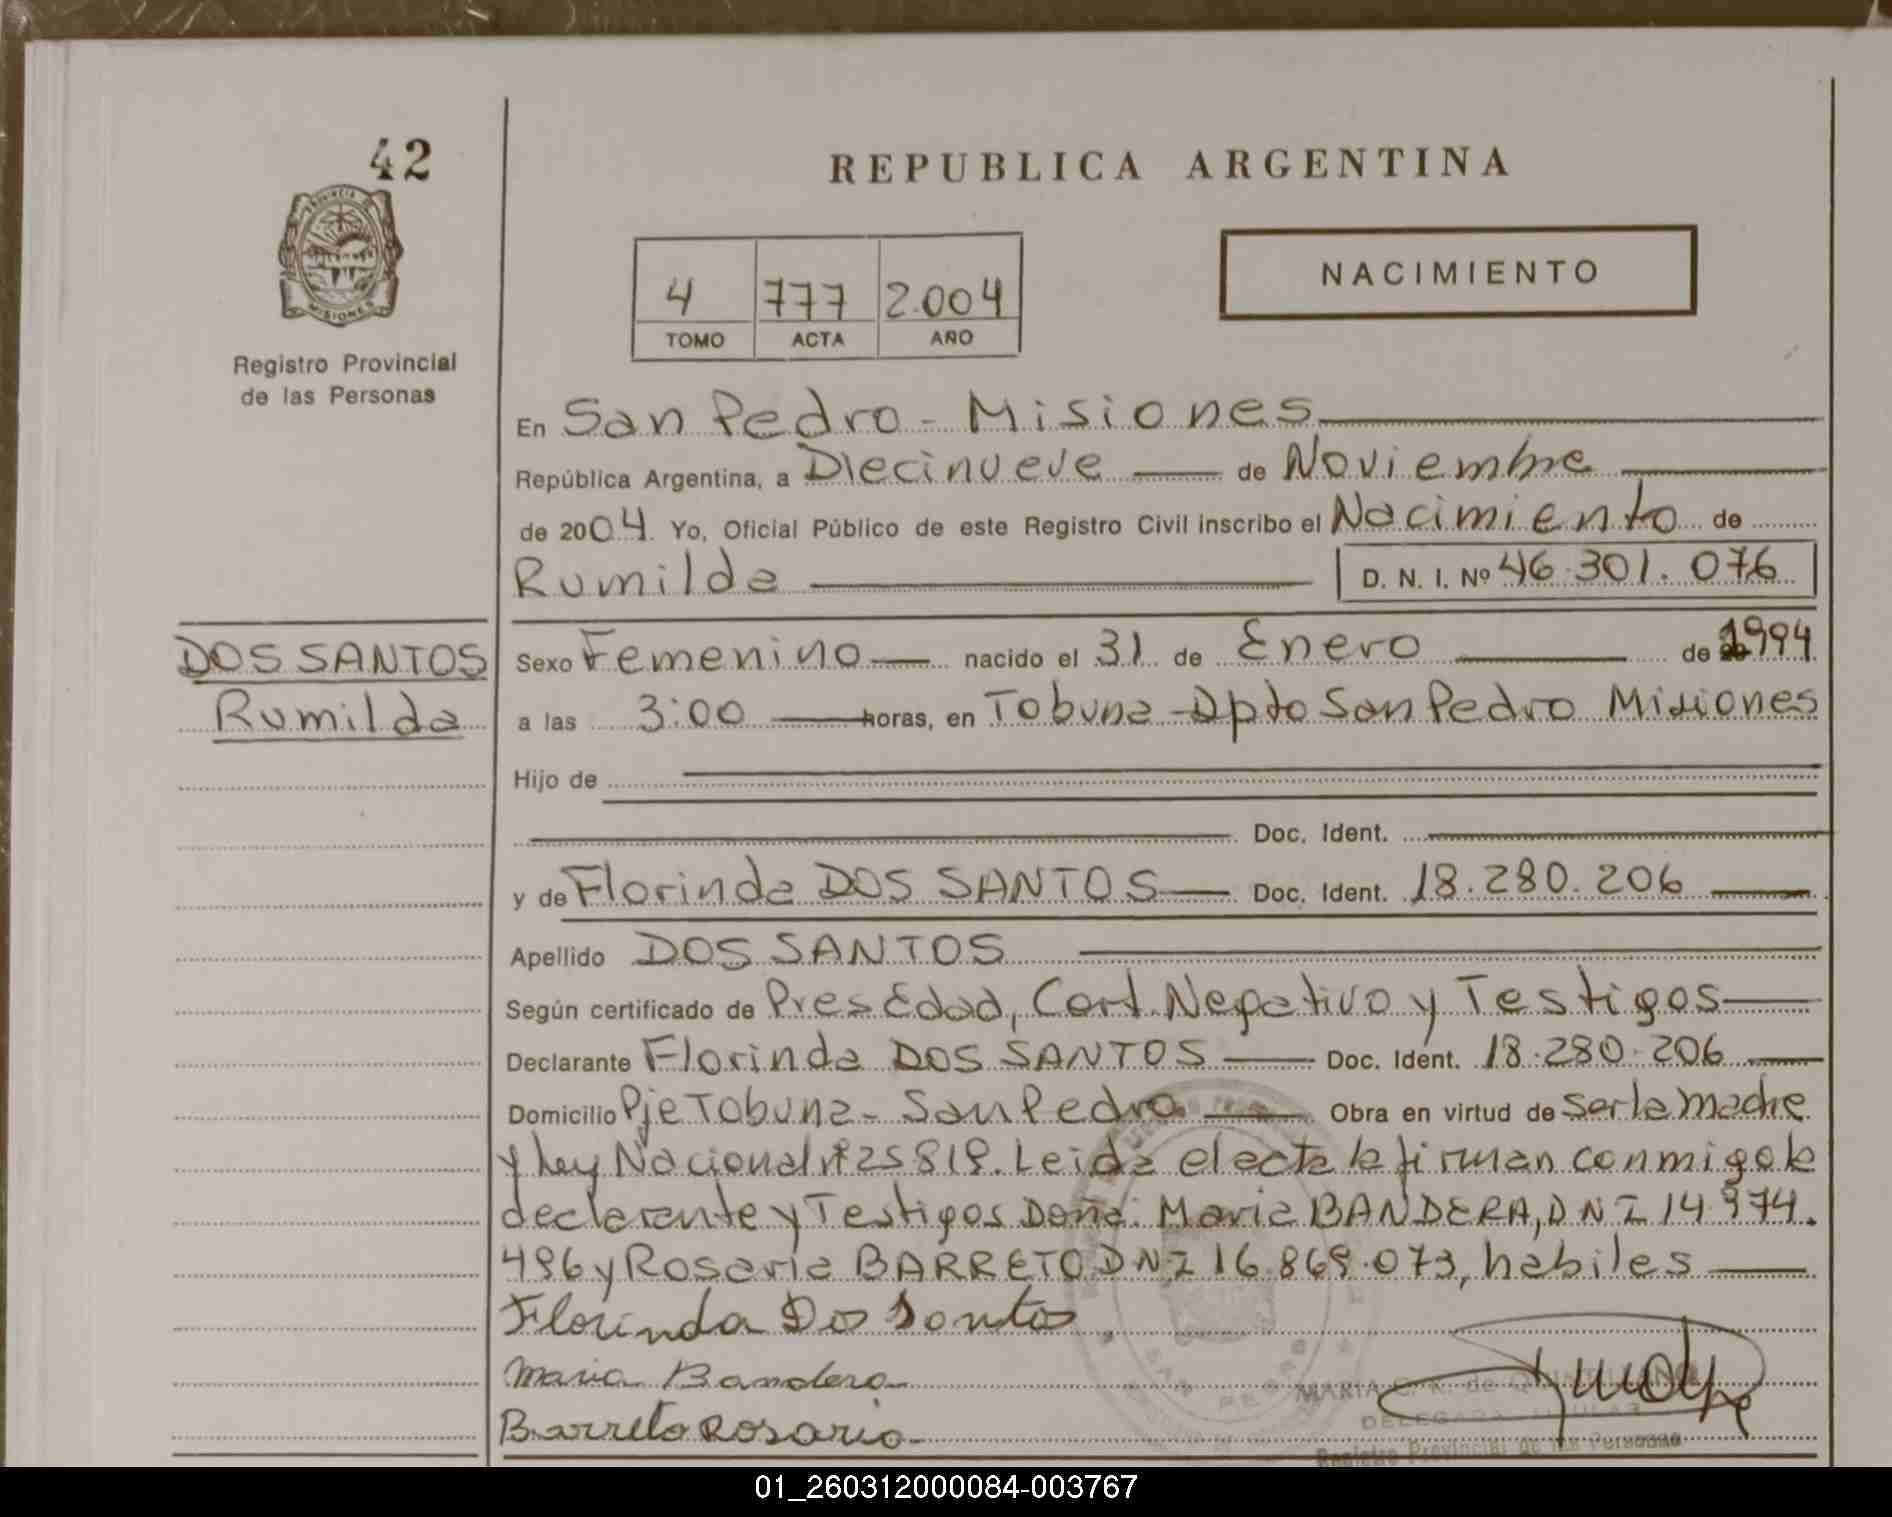 42
REPUBLICA ARGENTINA
PROVINCIA DE
MISIONES
Registro Provincial
de las Personas
4 777 2.004
TOMO ACTA AÑO
NACIMIENTO
En San Pedro - Misiones
República Argentina, a Diecinueve de Noviembre
de 2004. Yo, Oficial Público de este Registro Civil inscribo el Nacimiento de
Rumilda D. N. I. Nº 46.301.076
DOS SANTOS
Rumilda
Sexo Femenino nacido el 31 de Enero de 1994
a las 3:00 horas, en Tobuna - Dpto San Pedro Misiones
Hijo de
Doc. Ident.
y de Florinda DOS SANTOS Doc. Ident. 18.280.206
Apellido DOS SANTOS
Según certificado de Pres Edad, Cert. Negativo y Testigos
Declarante Florinda DOS SANTOS Doc. Ident. 18.280.206
Domicilio Pje Tobuna - San Pedro Obra en virtud de ser la madre
y Ley Nacional nº 25819. Leida el acta la firman conmigo la
declarante y Testigos Doña: Maria BANDERA, DNI 14.974.
496 y Rosaria BARRETO DNI 16.869.073, habiles
Florinda Dos Santos
Maria Bandera
Barreto Rosario
SAN PEDRO
MARIA de
DELEGADA TITULAR
Registro Provincial de las Personas
01_260312000084-003767